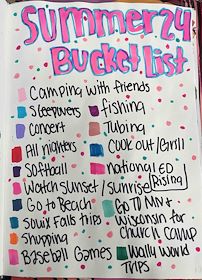 Summer 24
Bucket List
Camping with friends
Sleepovers
fishing
Concert
Tubing
All nighters
Cook out/Grill
Softball
National ED
Watch sunset/sunrise
Rising
Go to Beach
Go TO MN +
Souix Falls trips
Wisconsin for
Shopping
Church camp
Baseball Games
Wally World
Trips